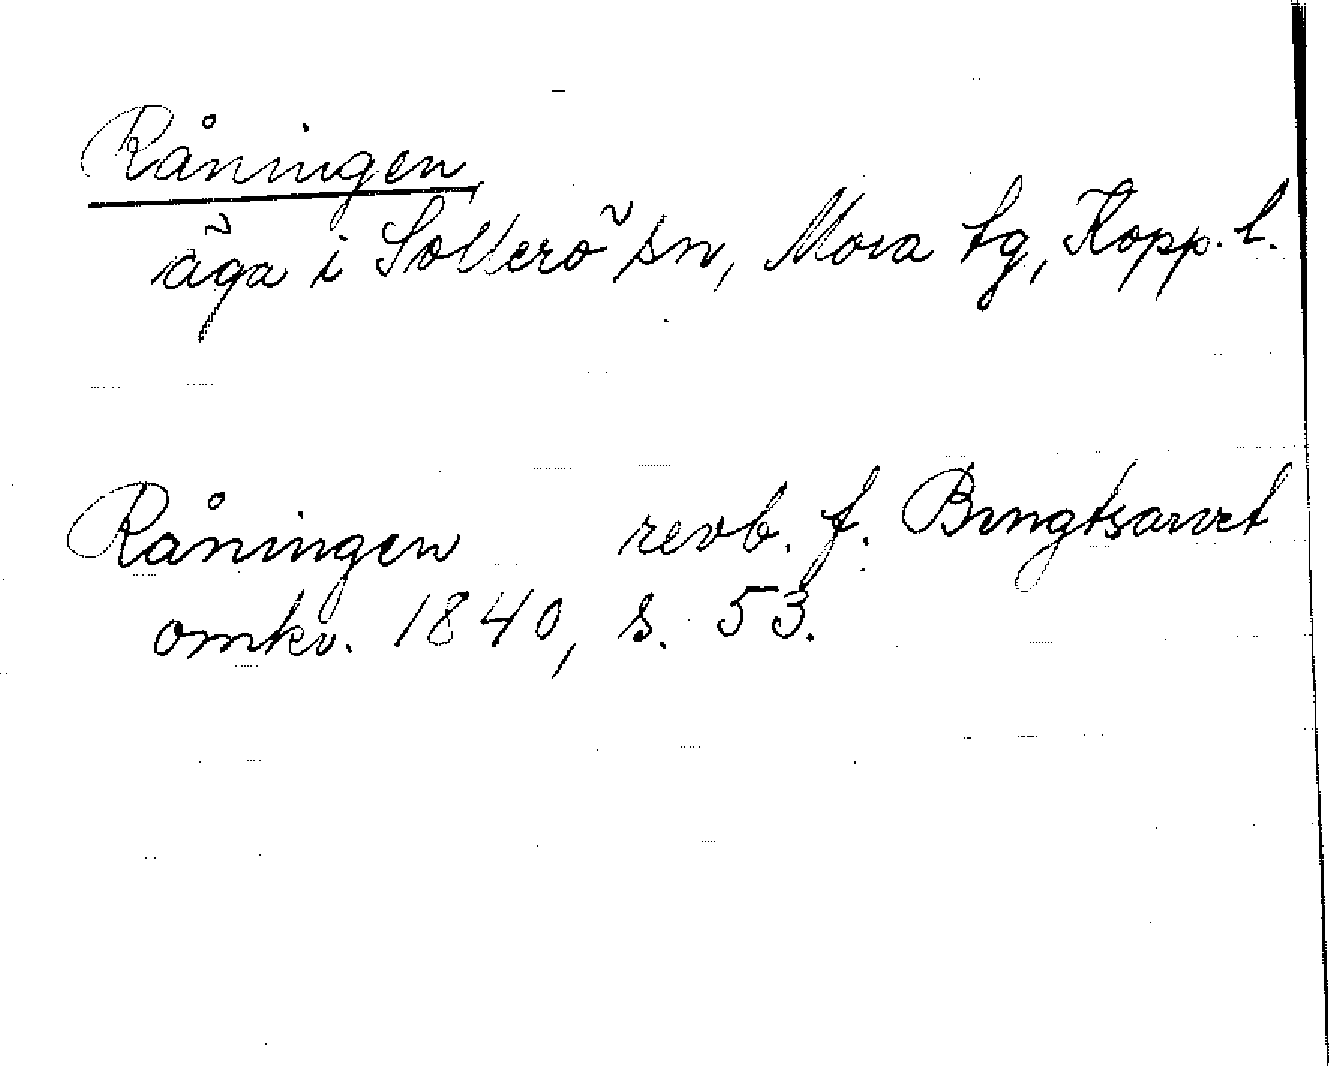 Råningen
äga i Sollerö sn, Mora tg, Kopp. l.
Råningen revb. f. Bengtsarvet
omkr. 1840, s. 53.